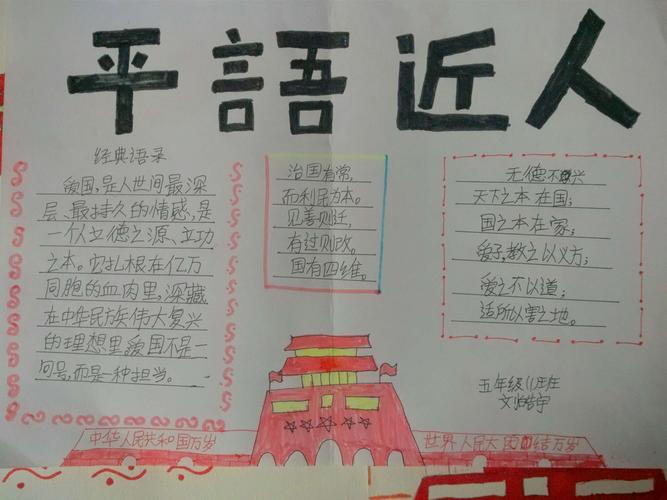 平語近人
经典语录
爱国,是人世间最深
层、最持久的情感,是
一个人立德之源、立功
之本。它扎根在亿万
同胞的血肉里,深藏
在中华民族伟大复兴
的理想里爱国不是一
句号,而是一种担当。
治国有常,
而利民为本。
见善则迁,
有过则改。
国有四维。
无德不兴
天下之本在国;
国之本在家;
爱子,教之以义方;
爱之不以道;
适所以害之地。
五年级(1)班
中华人民共和国万岁
世界人民大团结万岁